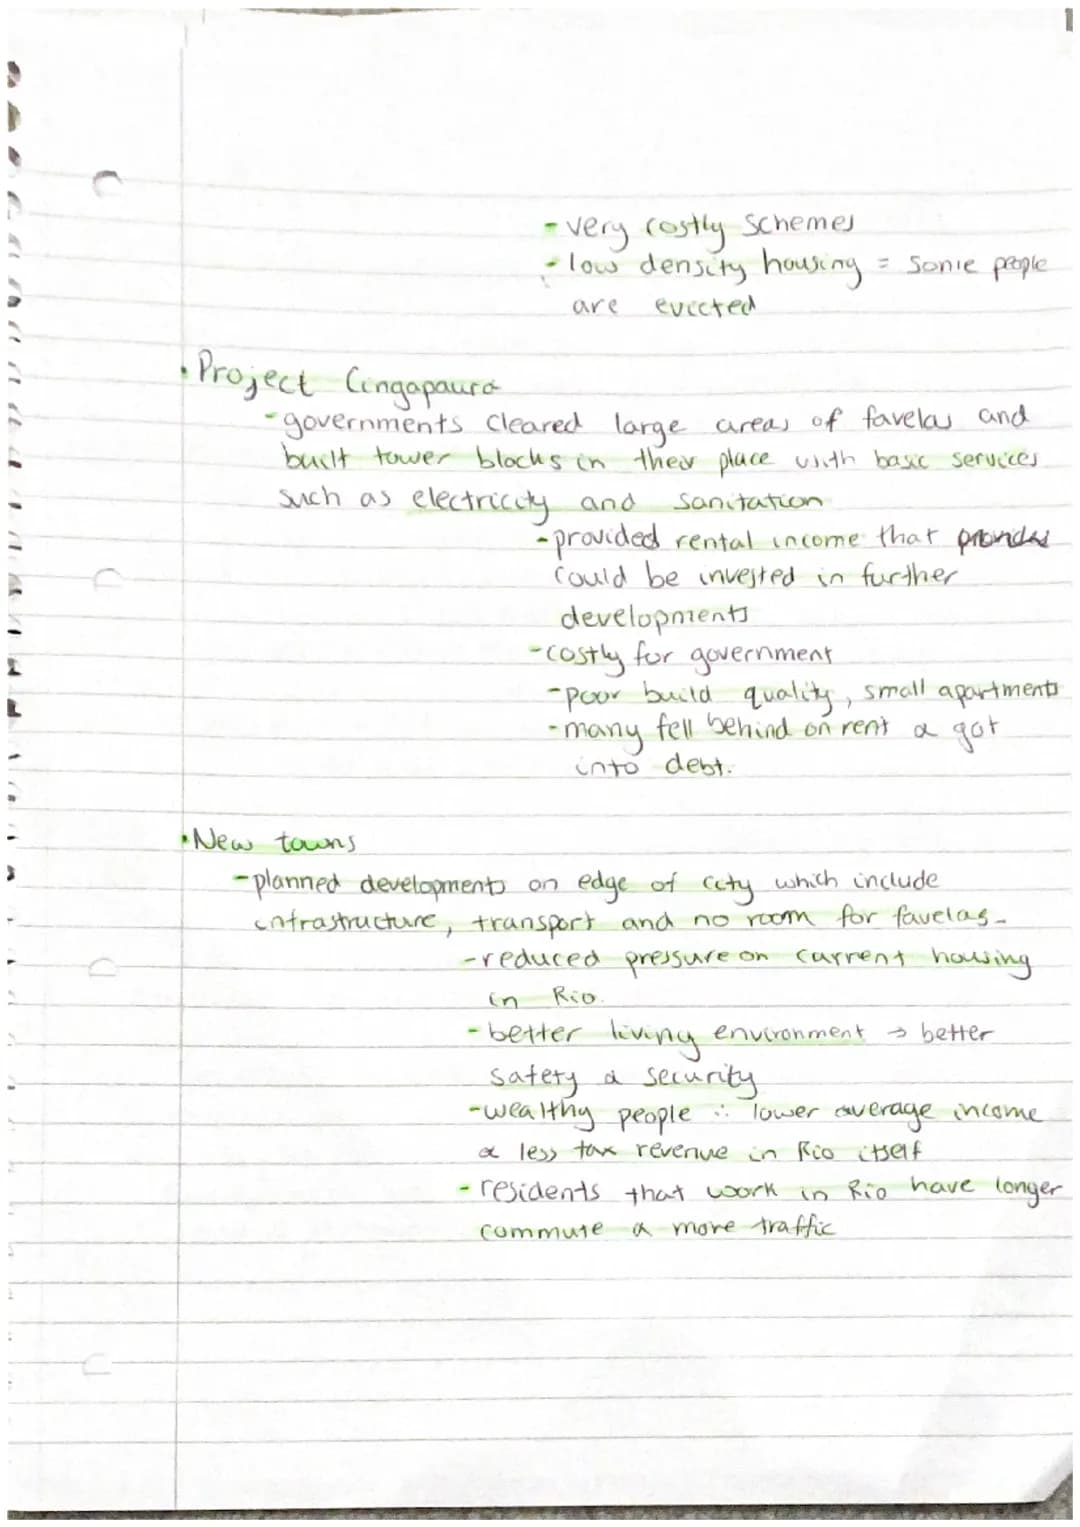 - very costly schemes
- low density housing = some people
are evicted
• Project Cingapaura
- governments cleared large areas of favelas and
built tower blocks in their place with basic services
such as electricity and sanitation
- provided rental income that provides
could be invested in further
developments
- costly for government
- poor build quality, small apartments
- many fell behind on rent & got
into debt.
• New towns
- planned developments on edge of city which include
infrastructure, transport and no room for favelas -
- reduced pressure on current housing
in Rio.
- better living environment → better
safety & security
- wealthy people ∴ lower average income
& less tax revenue in Rio itself
- residents that work in Rio have longer
commute & more traffic